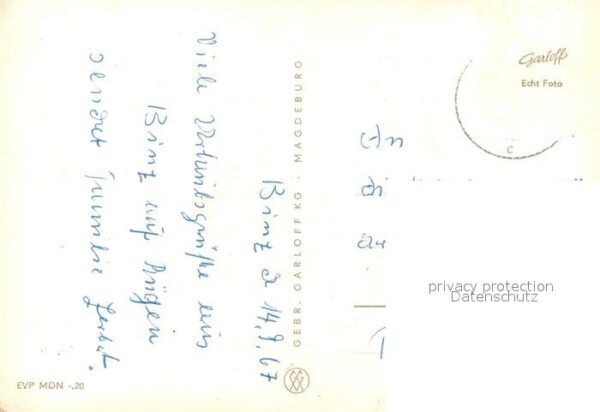 Binz d 14.9.67
Viele Urlaubsgrüße aus
Binz auf Rügen
sendet Familie
GEBR. GARLOFF KG · MAGDEBURG
EVP MDN -,20
Garloff
Echt Foto
c
privacy protection
Datenschutz